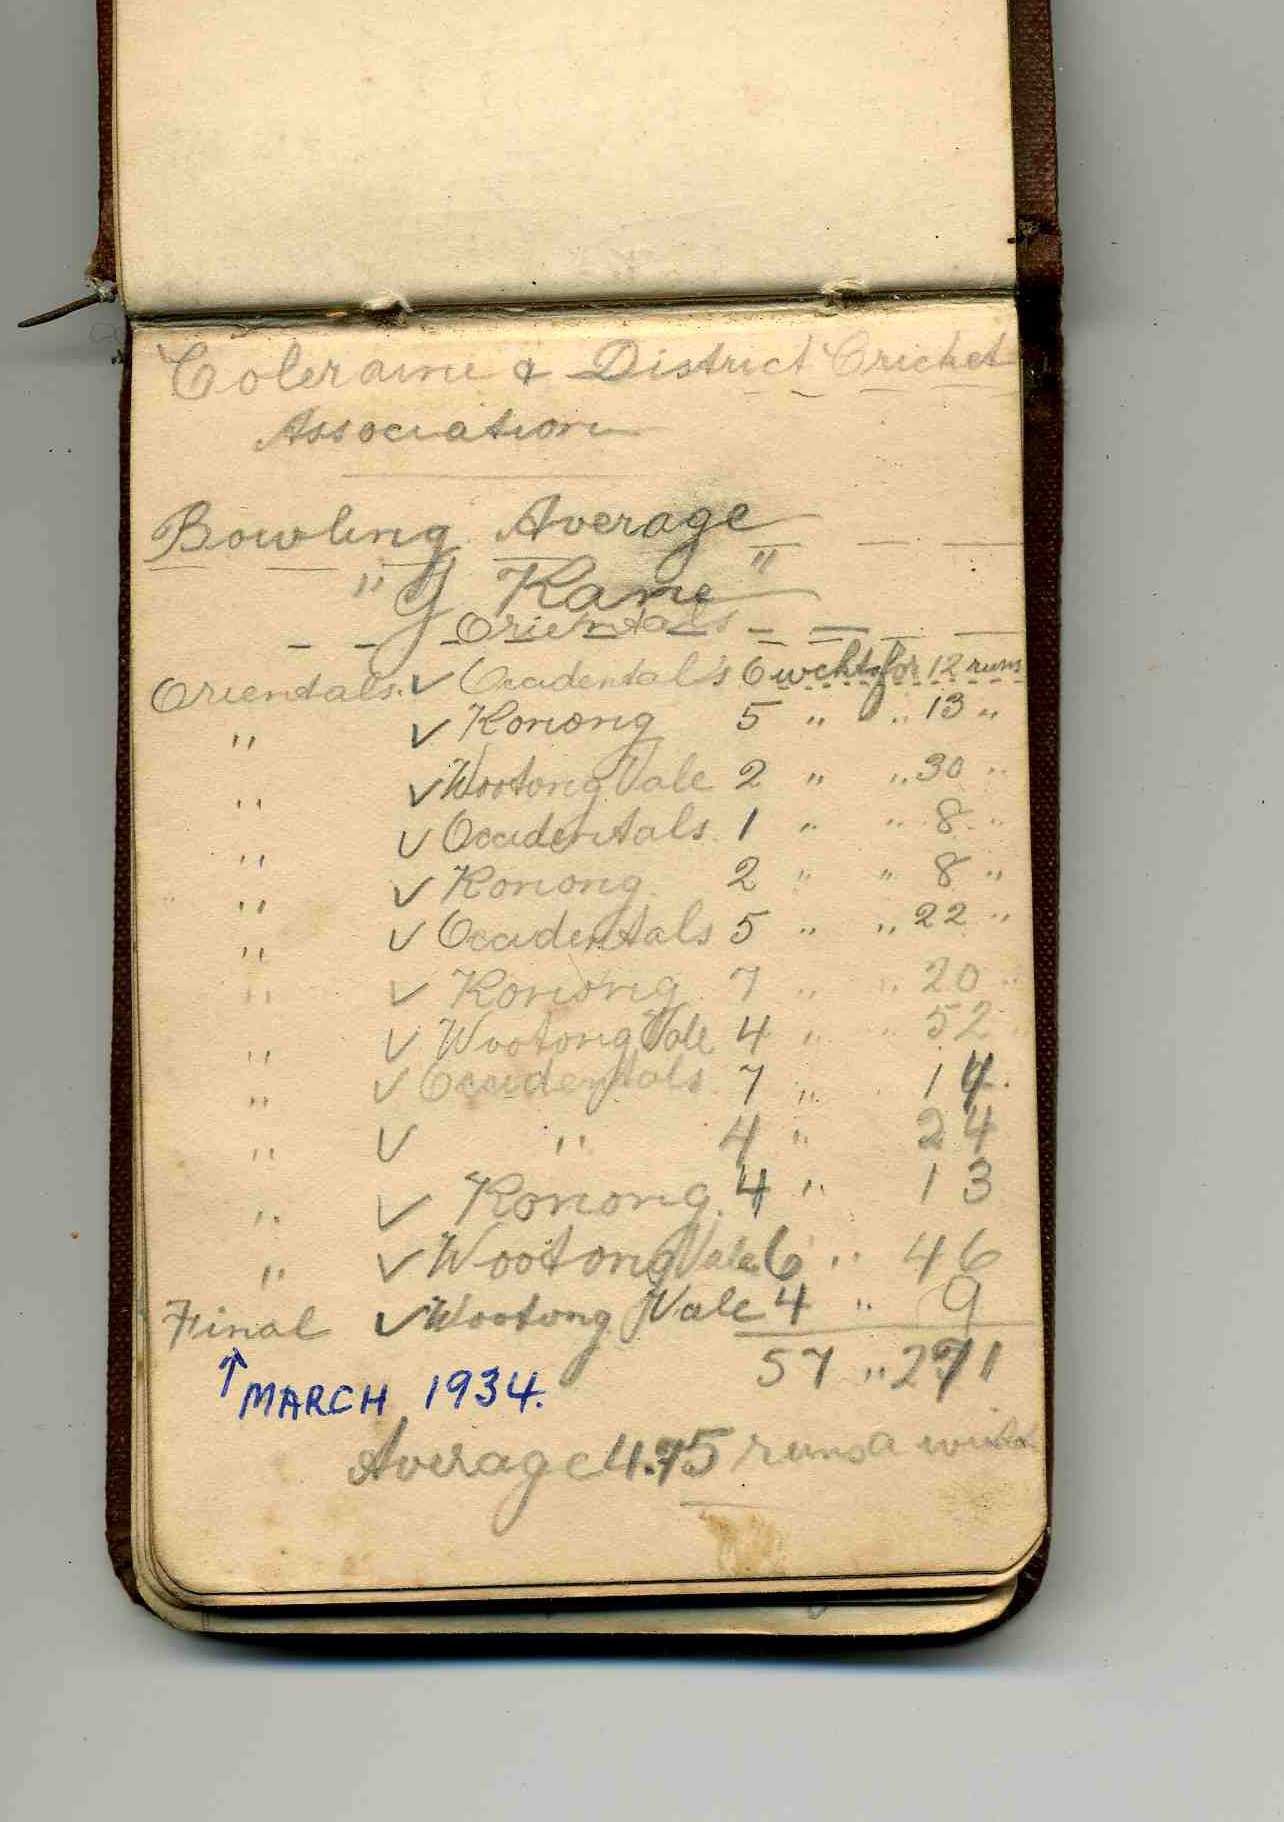 Coleraine & District Cricket
Association
Bowling Average
"J Kane"
Orientals
Orientals. v Occidental's 6 wckts for 12 runs
" v Konong 5 " " 13 "
" v Wootong Vale 2 " " 30 "
" v Occidentals. 1 " " 8 "
" v Konong 2 " " 8 "
" v Occidentals 5 " " 22 "
" v Konong 7 " " 20 "
" v Wootong Vale 4 " " 52 "
" v Occidentals. 7 " " 14.
" v " 4 " 24
" v Konong. 4 " 13
" v Wootong Vale 6 " 46
Final v Wootong Vale 4 " 9
57 " 271
↑ MARCH 1934.
Average 4.75 runs a wicket